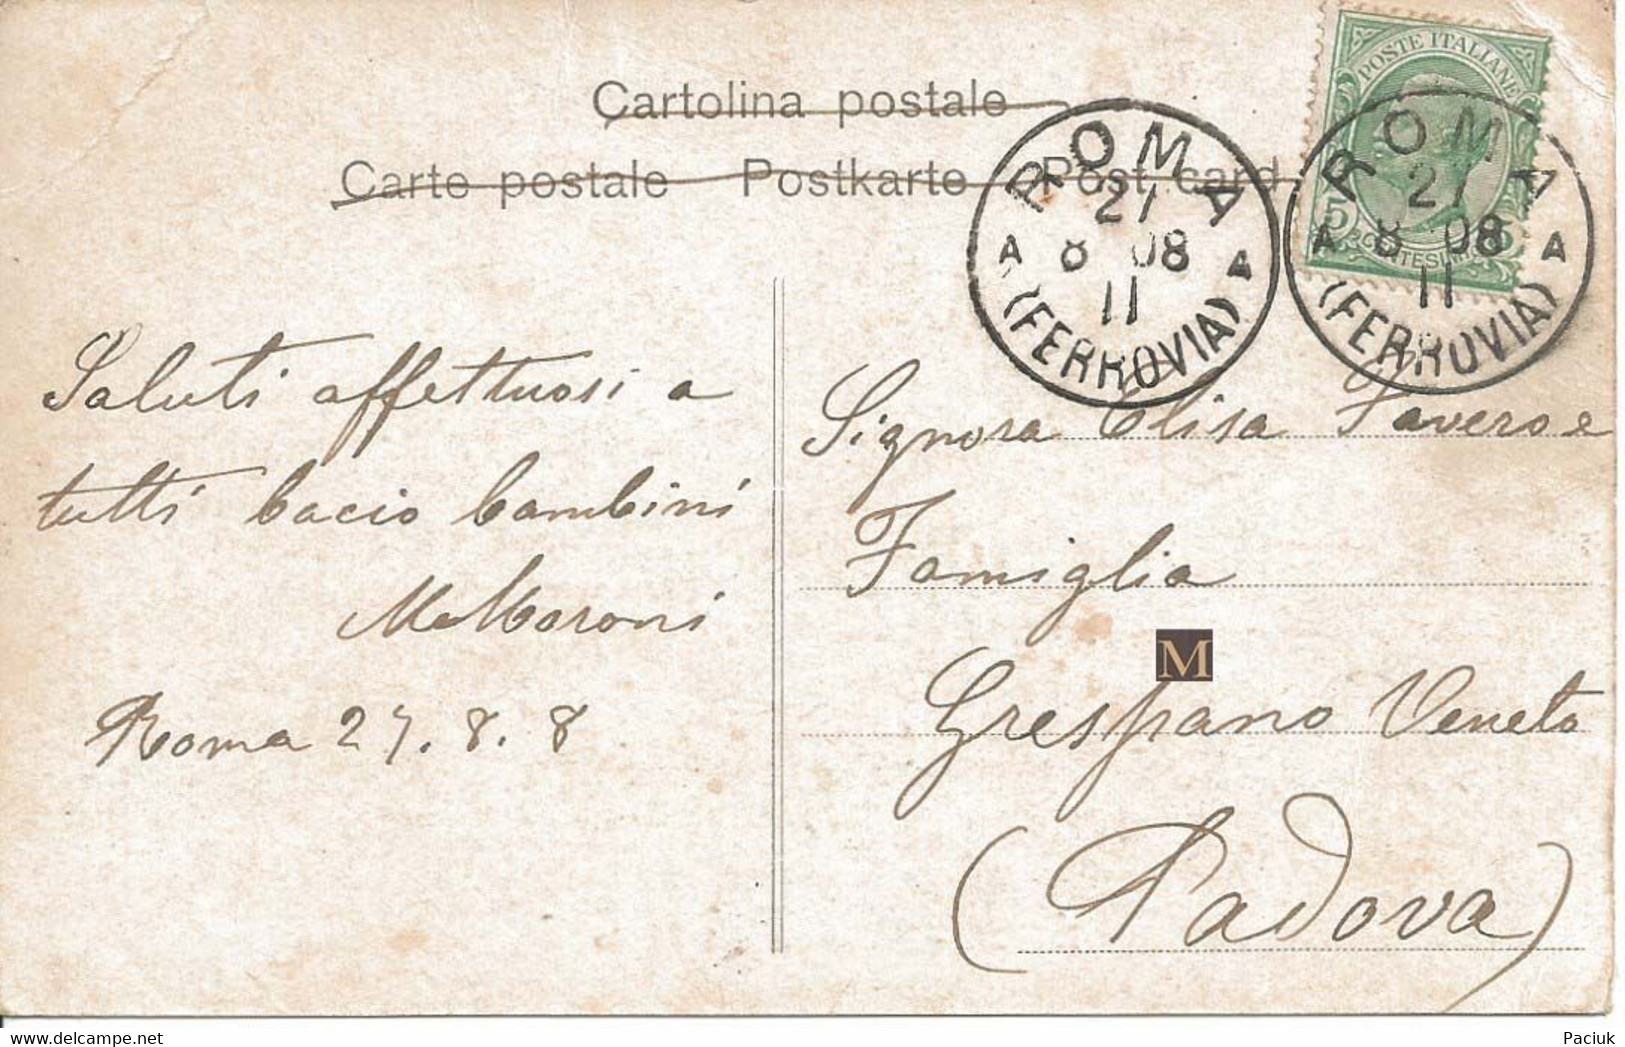 Cartolina postale
Carte postale Postkarte Post card
POSTE ITALIANE
ROMA
27
8 08
11
(FERROVIA)
A A
ROMA
27
8 08
11
(FERROVIA)
A A
Saluti affettuosi a
tutti bacio bambini
Roma 27. 8. 8
Signora Elisa Favero e
Famiglia
M
Crespano Veneto
(Padova)
Paciuk